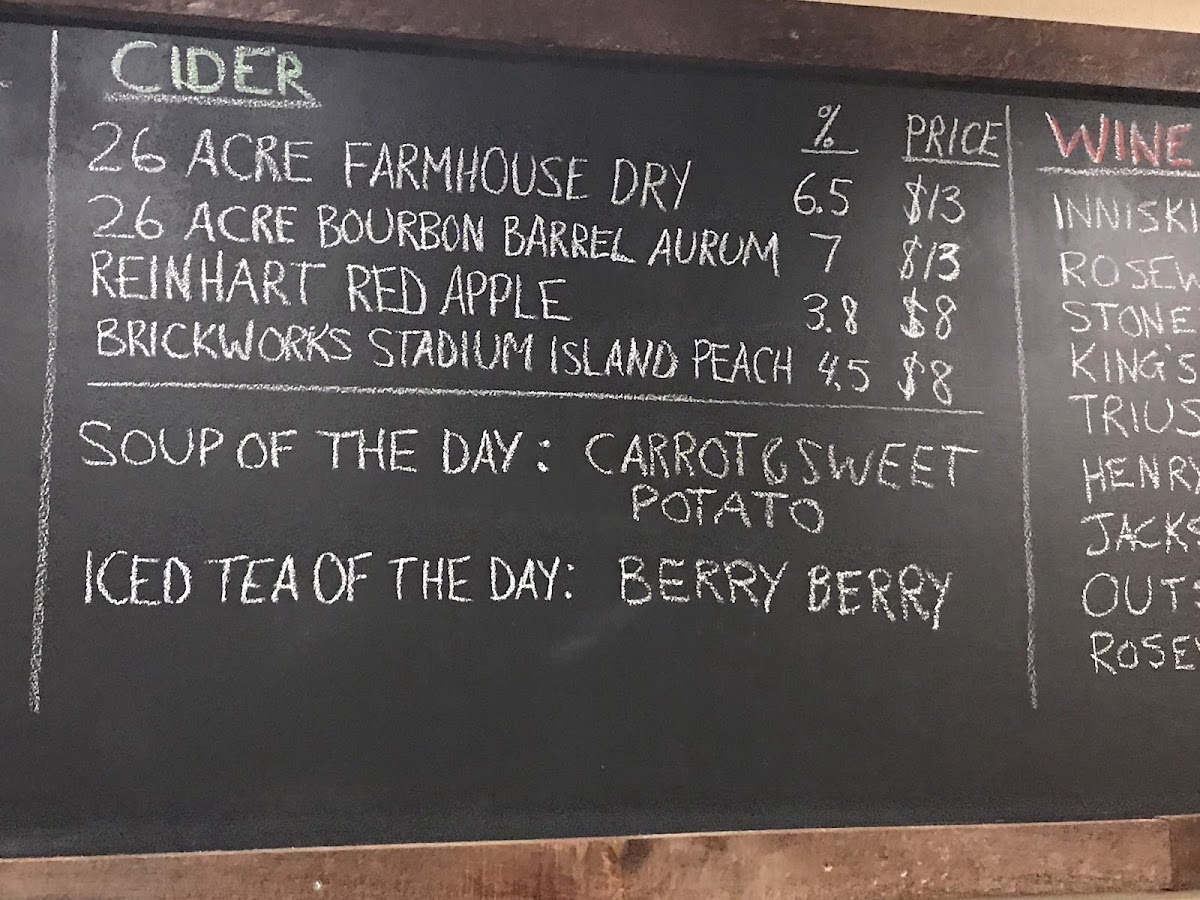 CIDER
% PRICE
26 ACRE FARMHOUSE DRY 6.5 $13
26 ACRE BOURBON BARREL AURUM 7 $13
REINHART RED APPLE 3.8 $8
BRICKWORKS STADIUM ISLAND PEACH 4.5 $8
SOUP OF THE DAY: CARROT & SWEET
POTATO
ICED TEA OF THE DAY: BERRY BERRY
WINE
STONE
KING'S
TRIUS
HENRY